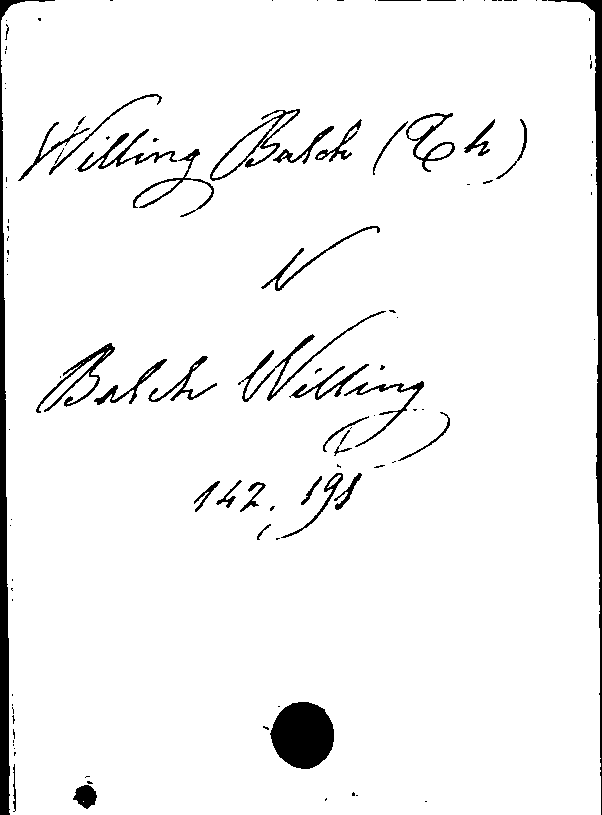 Willing Balch (Th)
V
Balch Willing
142, 191